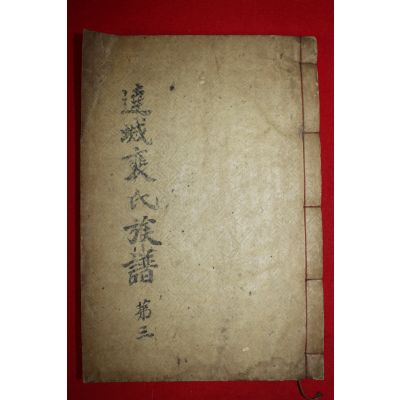 達城裵氏族譜 第三